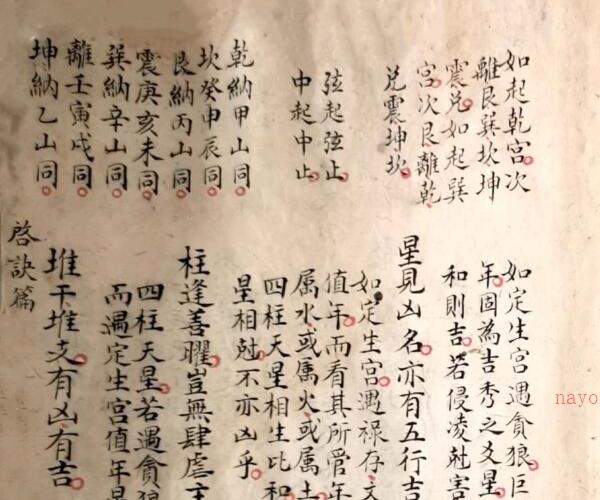 如起乾宮次
離艮巽坎坤
震兌如起巽
宮次艮離乾
兌震坤坎
弦起弦止
中起中止
乾納甲山同
坎癸申辰同
艮納丙山同
震庚亥未同
巽納辛山同
離壬寅戌同
坤納乙山同
如定生宮遇貪狼巨
年固為吉秀之支星
和則吉若侵凌尅害
星見凶名亦有五行吉
如定生宮遇祿存文
值年而看其所管年
属水或属火或属土
四柱天星相生比和
星相尅不亦凶乎
柱逢善曜豈無肆虐主
四柱天星若遇貪狼
而遇定生宮值年星
堆干堆支有凶有吉
啓訣篇
nayo